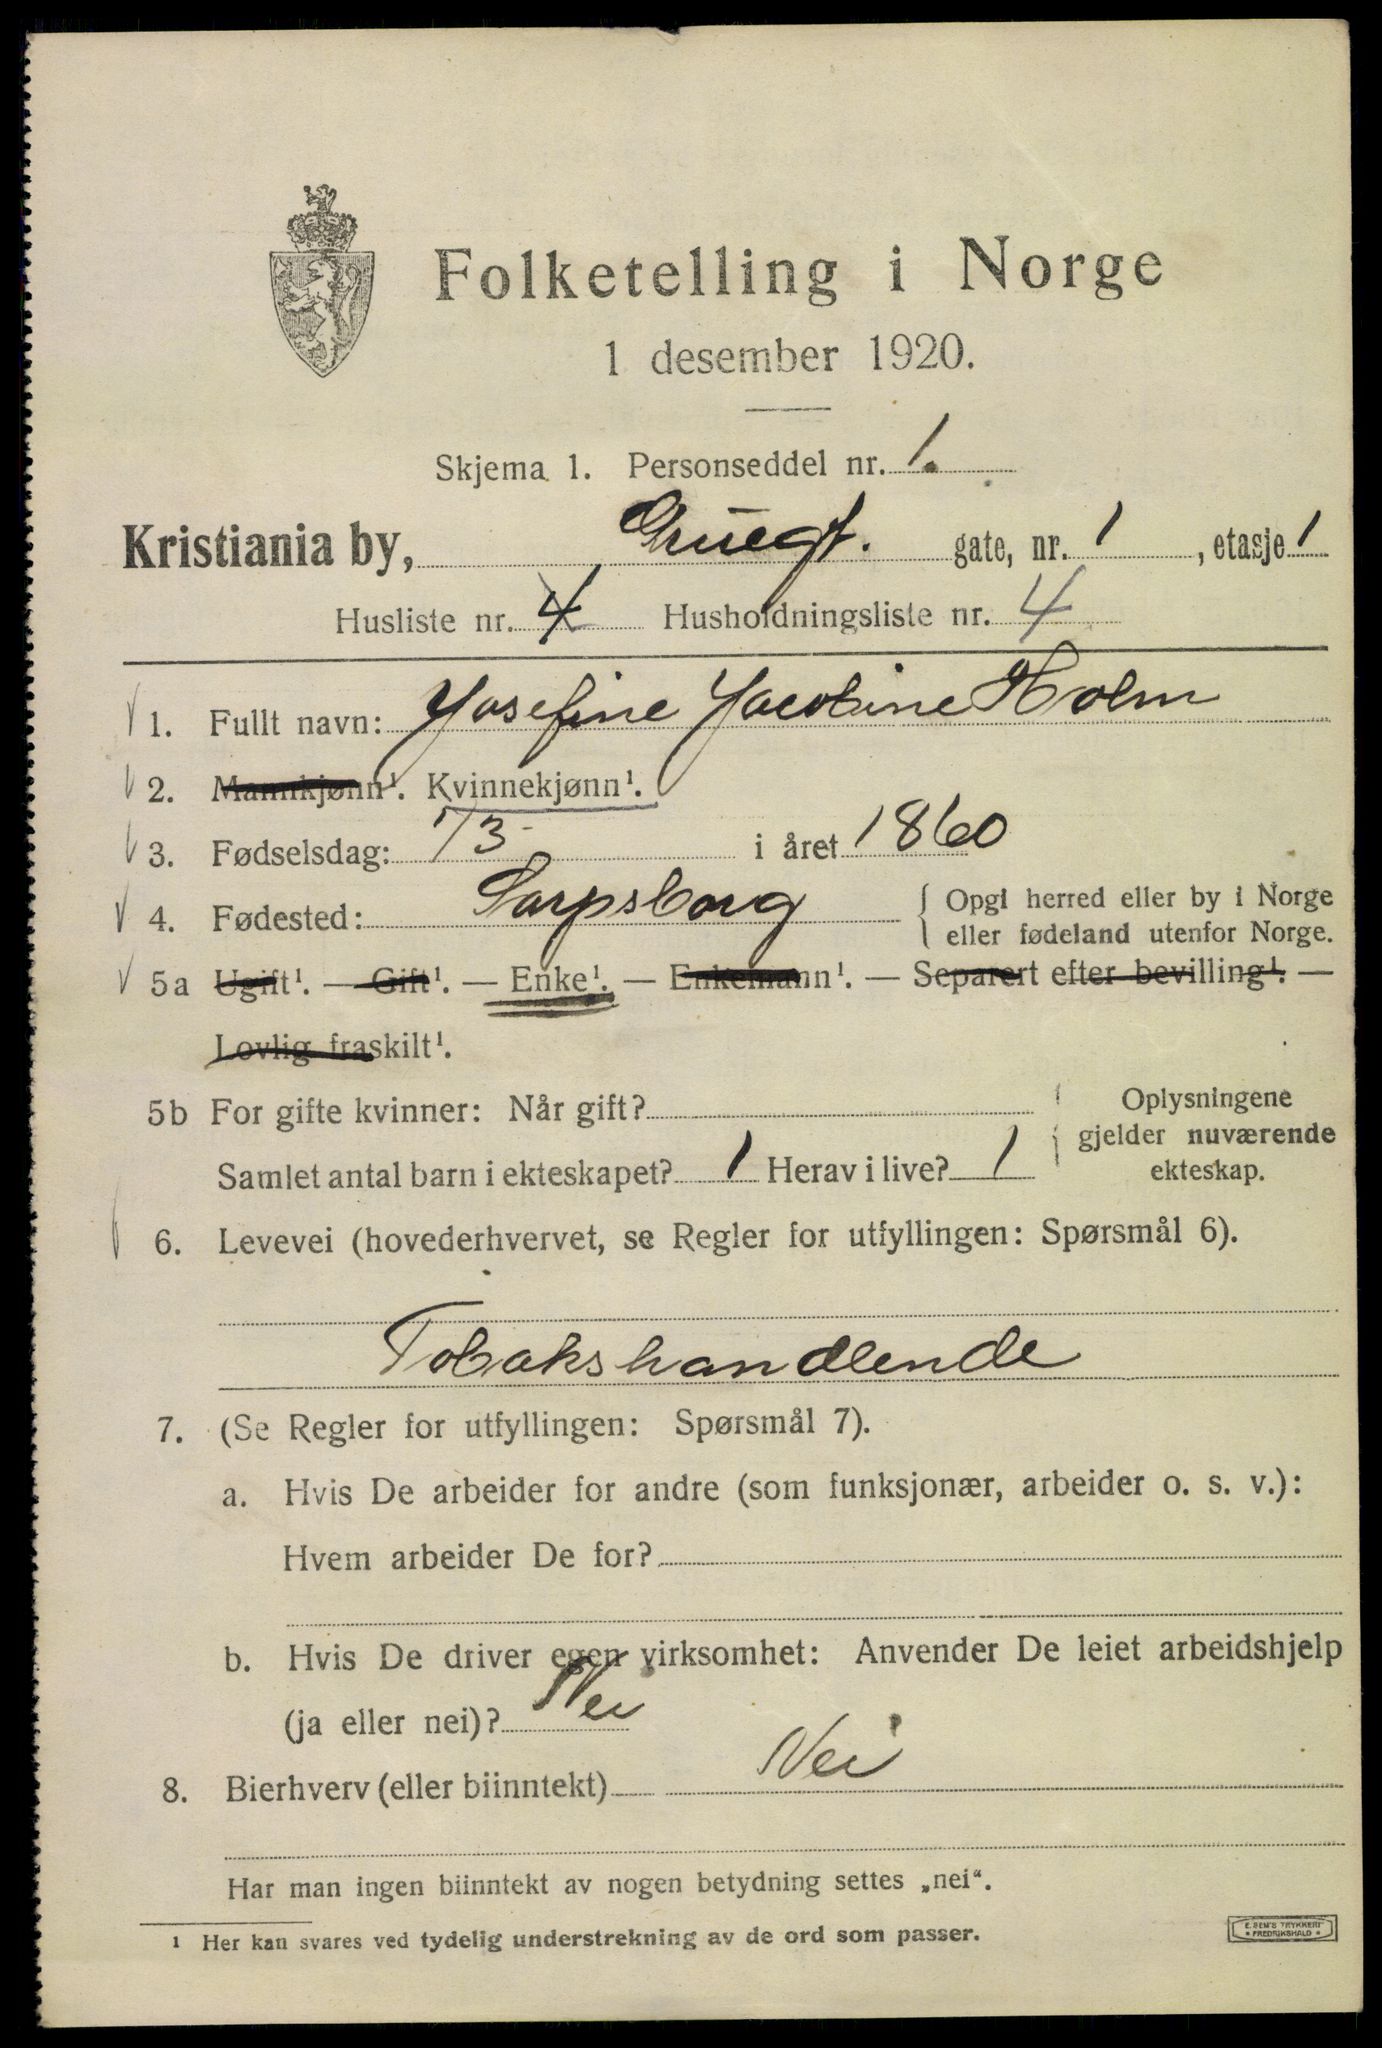 Folketelling i Norge
1 desember 1920.
Skjema 1. Personseddel nr. 1.
Kristiania by, Gruegt. gate, nr. 1, etasje 1
Husliste nr. 4 Husholdningsliste nr. 4
1. Fullt navn: Josefine Jacobine Holm
2. Mannkjønn¹. Kvinnekjønn¹.
3. Fødselsdag: 7/3 i året 1860
4. Fødested: Sarpsborg { Opgi herred eller by i Norge
eller fødeland utenfor Norge.
5a Ugift¹. — Gift¹. — Enke¹. — Enkemann¹. — Separert efter bevilling¹. —
Lovlig fraskilt¹.
5b For gifte kvinner: Når gift?
Samlet antal barn i ekteskapet? 1 Herav i live? 1
Oplysningene
gjelder nuværende
ekteskap.
6. Levevei (hovederhvervet, se Regler for utfyllingen: Spørsmål 6).
Tobakshandlende
7. (Se Regler for utfyllingen: Spørsmål 7).
a. Hvis De arbeider for andre (som funksjonær, arbeider o. s. v.):
Hvem arbeider De for?
b. Hvis De driver egen virksomhet: Anvender De leiet arbeidshjelp
(ja eller nei)? Nei
8. Bierhverv (eller biinntekt) Nei
Har man ingen biinntekt av nogen betydning settes „nei“.
¹ Her kan svares ved tydelig understrekning av de ord som passer.
E. SEM'S TRYKKERI
* FREDRIKSHALD *